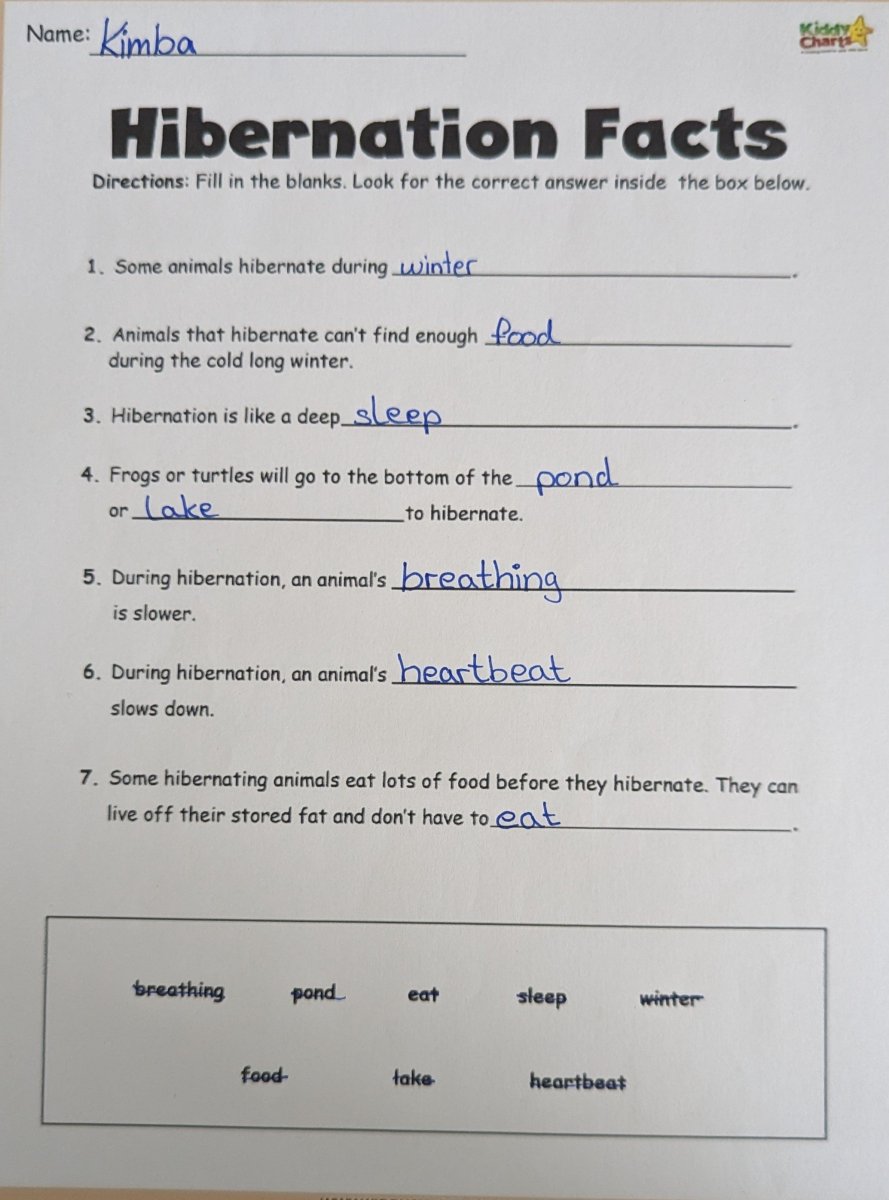 Name: Kimba
Kiddy
Charts
Hibernation Facts
Directions: Fill in the blanks. Look for the correct answer inside the box below.
1. Some animals hibernate during winter.
2. Animals that hibernate can't find enough food
during the cold long winter.
3. Hibernation is like a deep sleep.
4. Frogs or turtles will go to the bottom of the pond
or lake to hibernate.
5. During hibernation, an animal's breathing
is slower.
6. During hibernation, an animal's heartbeat
slows down.
7. Some hibernating animals eat lots of food before they hibernate. They can
live off their stored fat and don't have to eat.
breathing pond eat sleep winter
food lake heartbeat